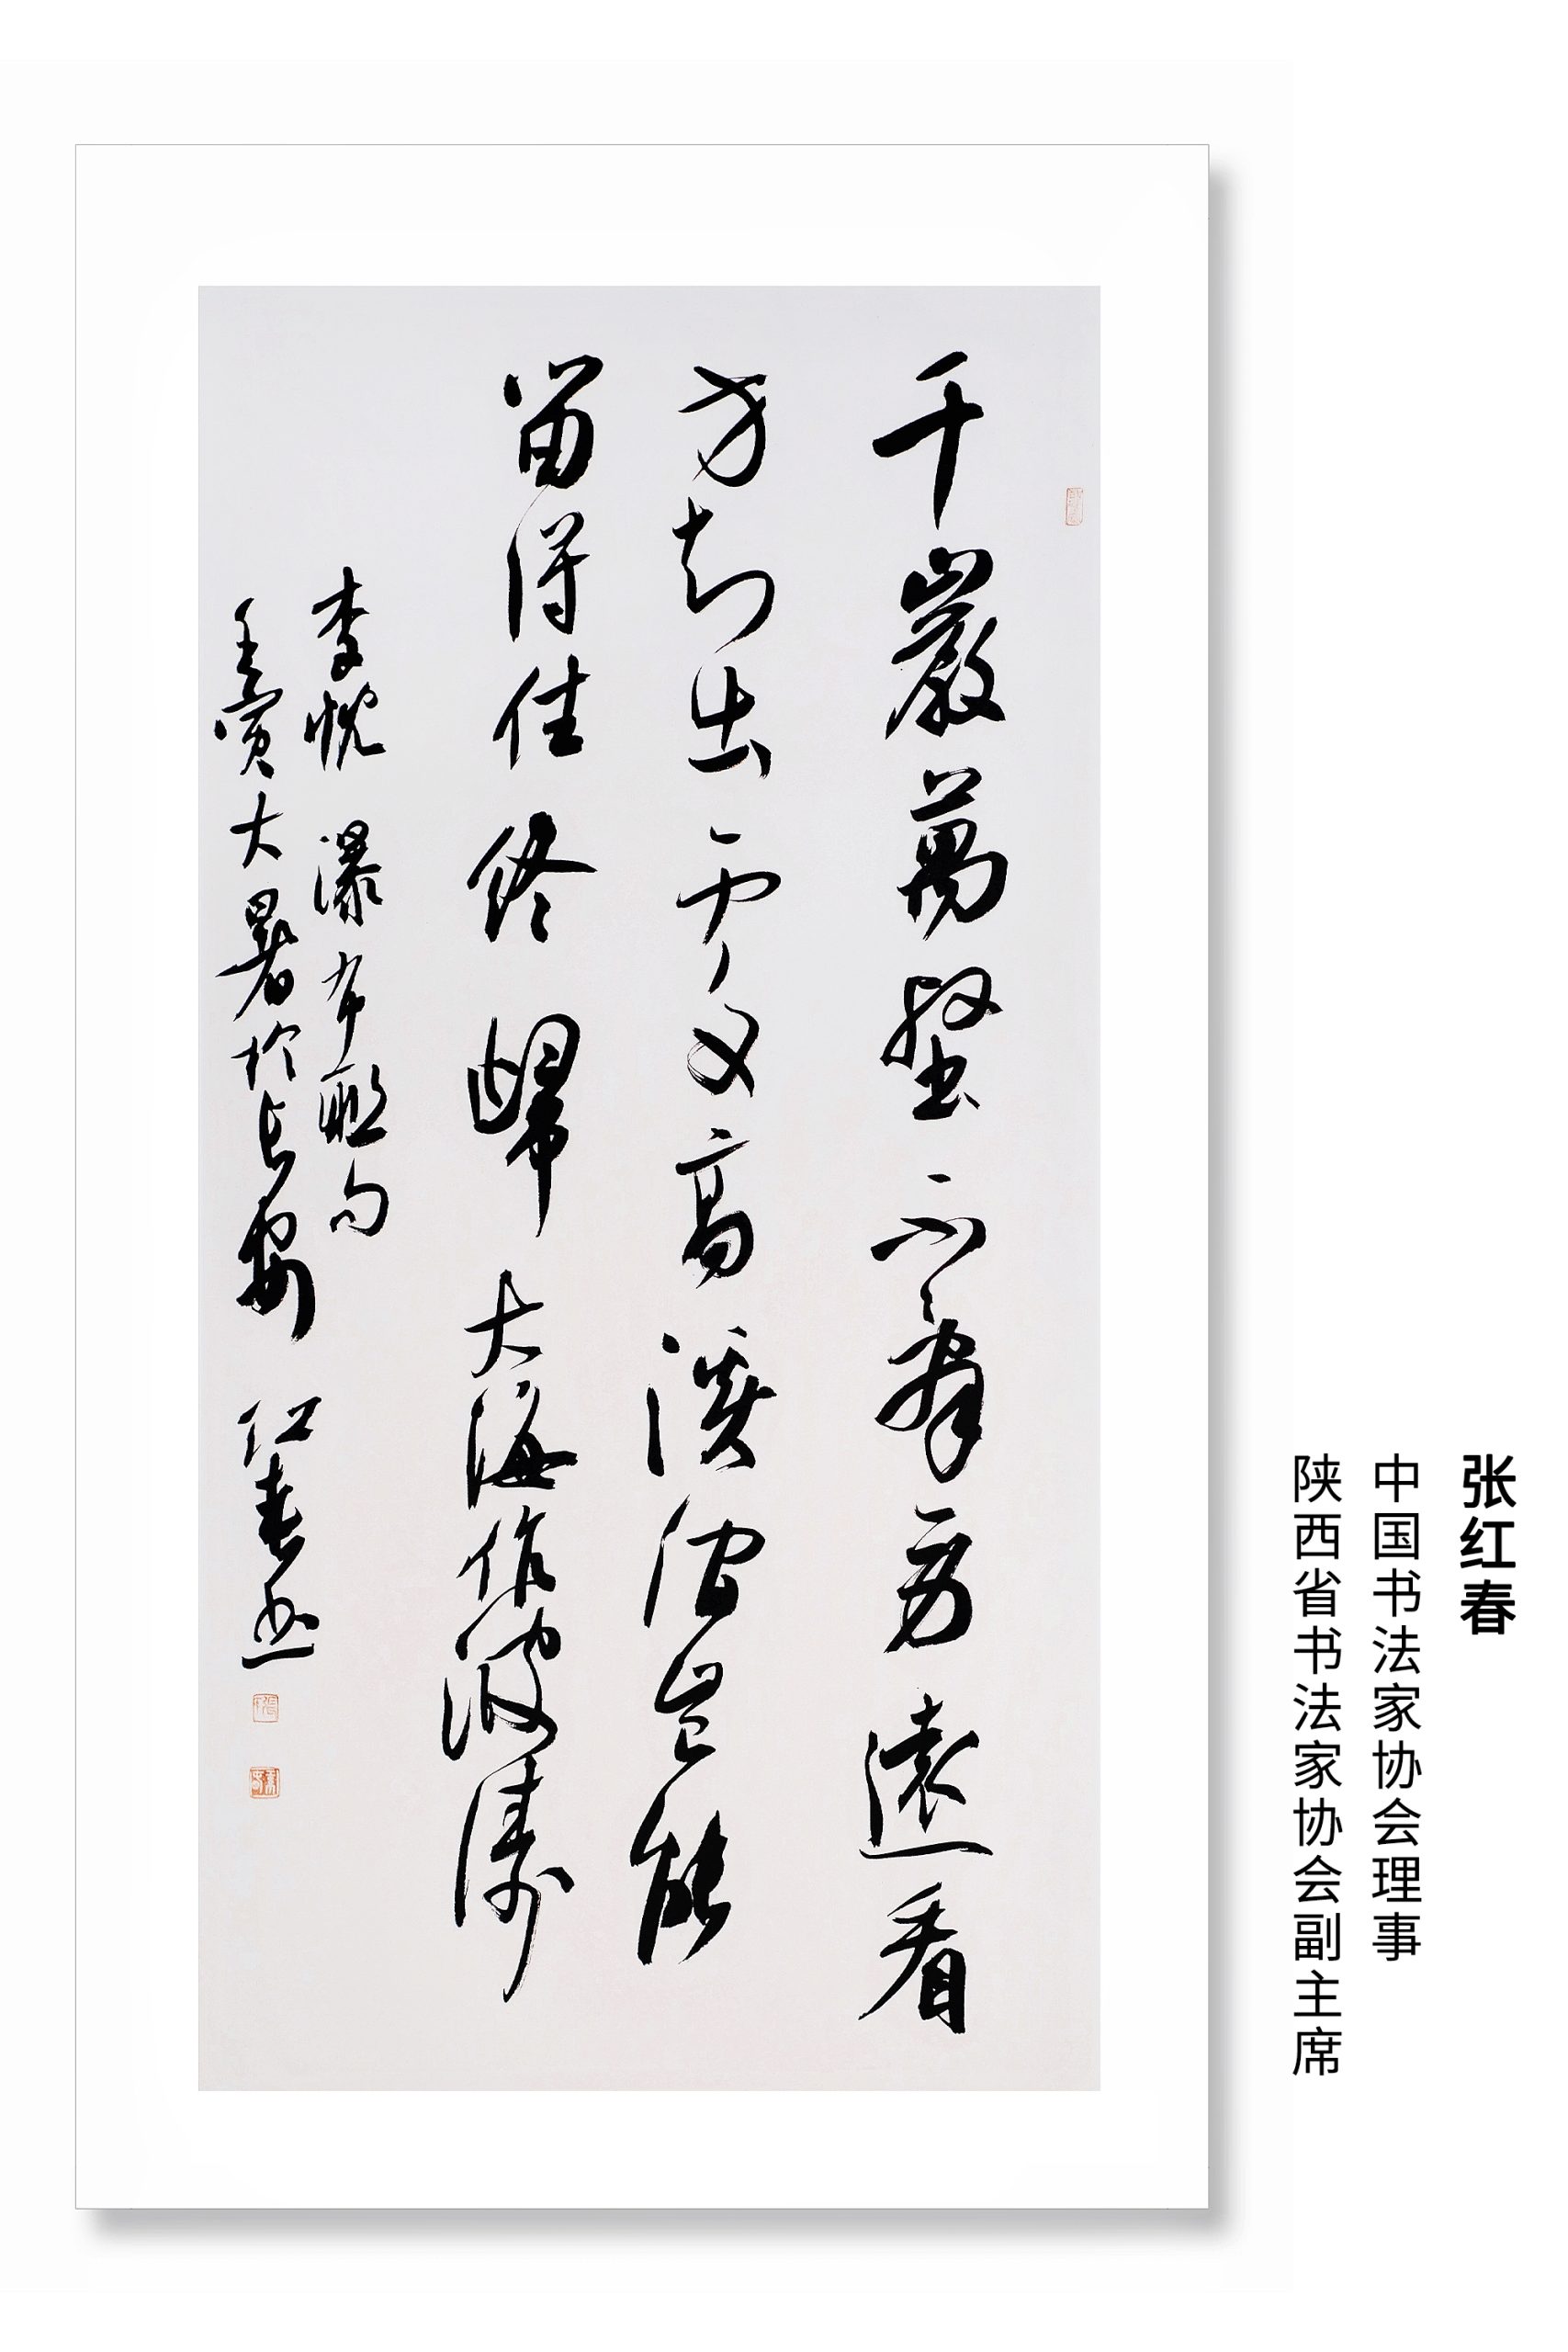 张红春
中国书法家协会理事
陕西省书法家协会副主席
千巖萬壑不辭勞遠看
方知出處高溪澗豈能
留得住終歸大海作波濤
李忱瀑布聯句
壬寅大暑於長安紅春書